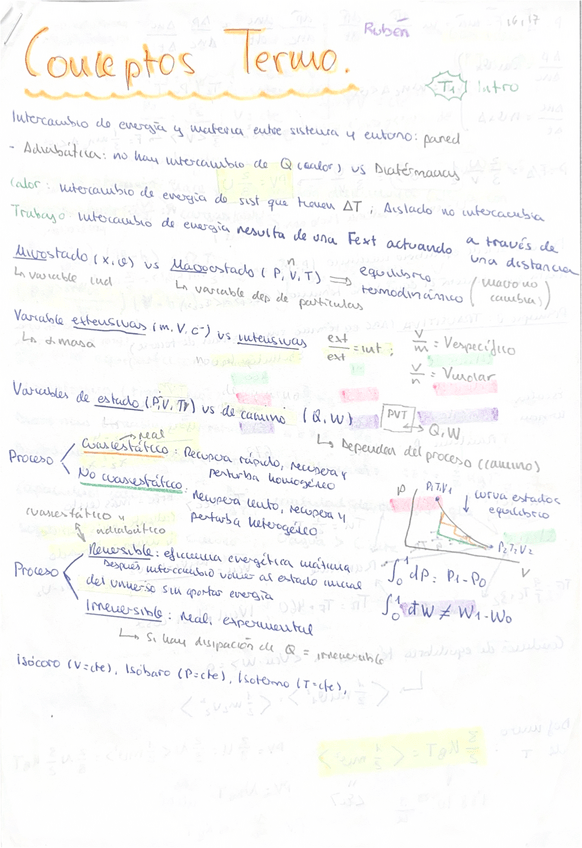 Rubén
16, 17
Conceptos Termo.
T1 Intro
Intercambio de energía y materia entre sistema y entorno: pared
- Adiabática: no hay intercambio de Q (calor) vs Diatérmanas
Calor: intercambio de energía de sist que tienen ΔT; Aislado no intercambia
Trabajo: intercambio de energía resulta de una Fext actuando a través de una distancia
Microstado (x, v) vs Macroestado (P, V, T) ⇒ equilibrio termodinámico (macro no cambia)
n
↳ variable ind
↳ variable dep de partículas
Variable extensivas (m, V, ) vs intensivas ext/ext = int; V/m = Vespecífico
↳ d masa
V/n = Vmolar
Variables de estado (P, V, T) vs de camino (Q, W) PVT → Q, W
↳ Dependen del proceso (camino)
Proceso
→ real
Cuasiestático: Recupera rápido, recupera y perturba homogéneo
No cuasiestático: recupera lento, recupera y perturba heterogéneo
P
P1T1V1
curva estados equilibrio
P2T2V2
V
cuasiestático y adiabático
Proceso
Reversible: eficiencia energética máxima
Después intercambio volver al estado inicial
del universo sin aportar energía
Irreversible: real, experimental
↳ Si hay disipación de Q = irreversible
∫₀¹ dP = P1 - P0
∫₀¹ đW ≠ W1 - W0
Isócoro (V=cte), Isóbaro (P=cte), Isotermo (T=cte),